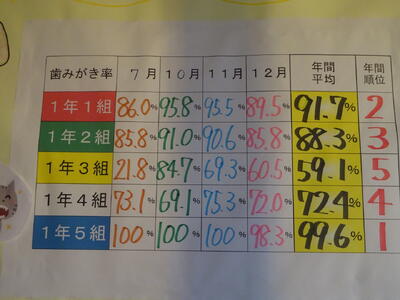 歯みがき率 7月 10月 11月 12月 年間平均 年間順位
1年1組 86.0% 95.8% 95.5% 89.5% 91.7% 2
1年2組 85.8% 91.0% 90.6% 85.8% 88.3% 3
1年3組 21.8% 84.7% 69.3% 60.5% 59.1% 5
1年4組 73.1% 69.1% 75.3% 72.0% 72.4% 4
1年5組 100% 100% 100% 98.3% 99.6% 1